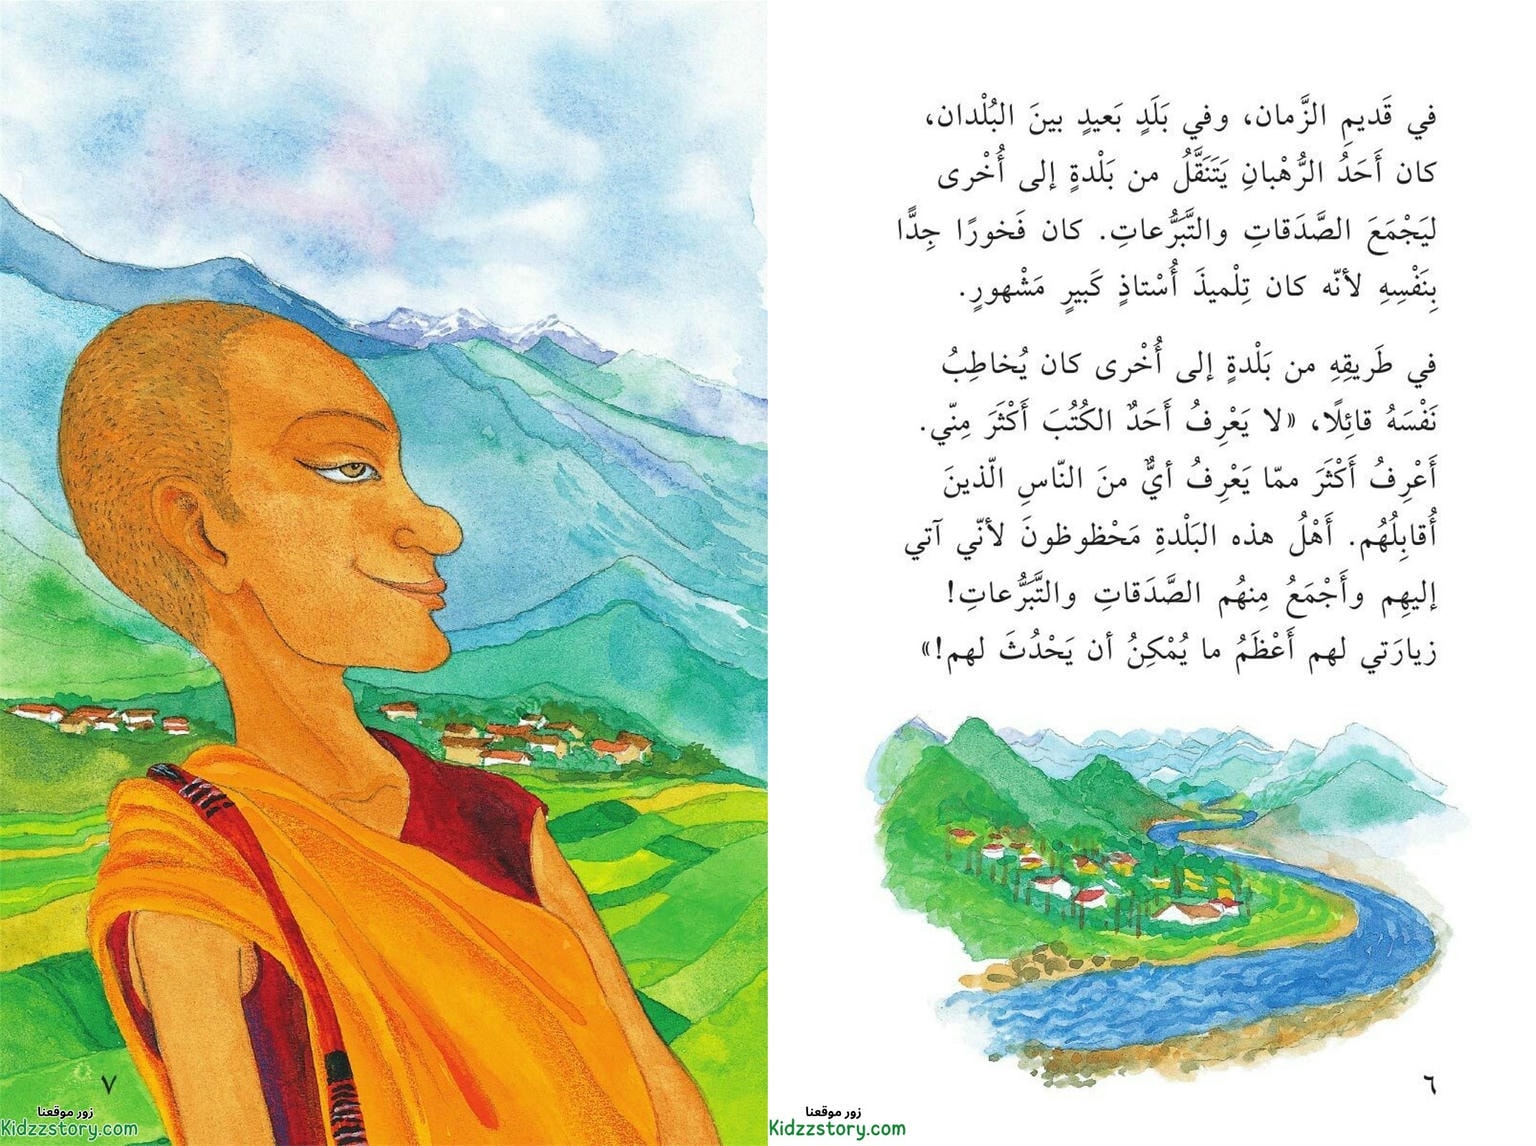 في قَديمِ الزَّمان، وفي بَلَدٍ بَعيدٍ بينَ البُلْدان،
كان أَحَدُ الرُّهْبانِ يَتَنَقَّلُ من بَلْدةٍ إلى أُخْرى
ليَجْمَعَ الصَّدَقاتِ والتَّبَرُّعاتِ. كان فَخورًا جِدًّا
بِنَفْسِهِ لأنّه كان تِلْميذَ أُسْتاذٍ كَبيرٍ مَشْهورٍ.
في طَريقِهِ من بَلْدةٍ إلى أُخْرى كان يُخاطِبُ
نَفْسَهُ قائِلًا، «لا يَعْرِفُ أَحَدٌ الكُتُبَ أَكْثَرَ مِنّي.
أَعْرِفُ أَكْثَرَ ممّا يَعْرِفُ أيٌّ منَ النّاسِ الّذينَ
أُقابِلُهُم. أَهْلُ هذه البَلْدةِ مَحْظوظونَ لأنّي آتي
إليهِم وأَجْمَعُ مِنهُم الصَّدَقاتِ والتَّبَرُّعاتِ!
زيارَتي لهم أَعْظَمُ ما يُمْكِنُ أن يَحْدُثَ لهم!»
٦
زور موقعنا
Kidzzstory.com
٧
زور موقعنا
Kidzzstory.com